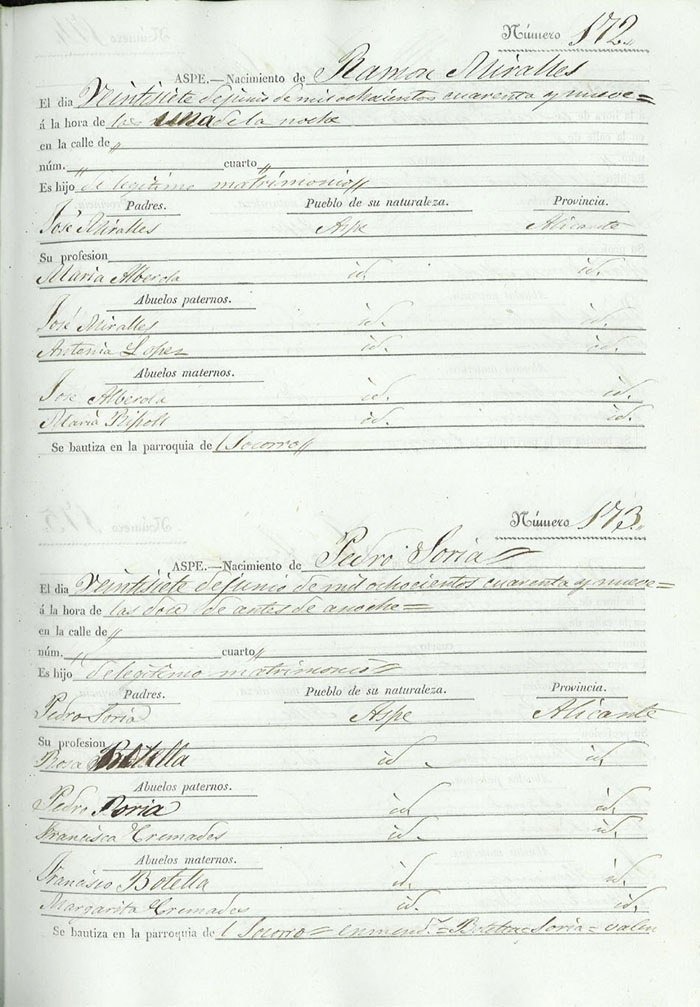 Número 172.
ASPE.—Nacimiento de Ramon Miralles
El dia Veintisiete de junio de mil ochocientos cuarenta y nueve =
á la hora de las una de la noche
en la calle de "
núm. " cuarto "
Es hijo de legitimo matrimonio "
Padres. Pueblo de su naturaleza. Provincia.
José Miralles Aspe Alicante
Su profesion
Maria Alberola id. id.
Abuelos paternos.
José Miralles id. id.
Antonia Lopez id. id.
Abuelos maternos.
Jose Alberola id. id.
Maria Ripoll id. id.
Se bautiza en la parroquia de l Socorro "
Número 173.
ASPE.—Nacimiento de Pedro Soria =
El dia Veintisiete de junio de mil ochocientos cuarenta y nueve =
á la hora de las doce de antes de anoche =
en la calle de "
núm. " cuarto "
Es hijo de legitimo matrimonio =
Padres. Pueblo de su naturaleza. Provincia.
Pedro Soria Aspe Alicante
Su profesion
Rosa Botella id. id.
Abuelos paternos.
Pedro Soria id. id.
Francisca Cremades id. id.
Abuelos maternos.
Francisco Botella id. id.
Margarita Cremades id. id.
Se bautiza en la parroquia de l Socorro = = Soria = valen